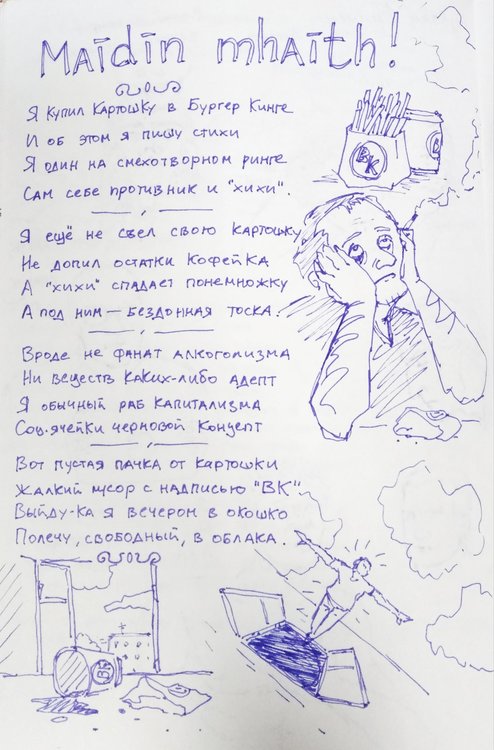 Maīdīn mhaīth!
Я купил картошку в Бургер Кинге
И об этом я пишу стихи
Я один на смехотворном ринге
Сам себе противник и "хихи".
Я ещё не съел свою картошку
Не допил остатки кофейка
А "хихи" спадает понемножку
А под ним — бездонная тоска.
Вроде не фанат алкоголизма
Ни веществ каких-либо адепт
Я обычный раб капитализма
Соц.ячейки черновой концепт
Вот пустая пачка от картошки
Жалкий мусор с надписью "BK"
Выйду-ка я вечером в окошко
Полечу, свободный, в облака.
BK
BK